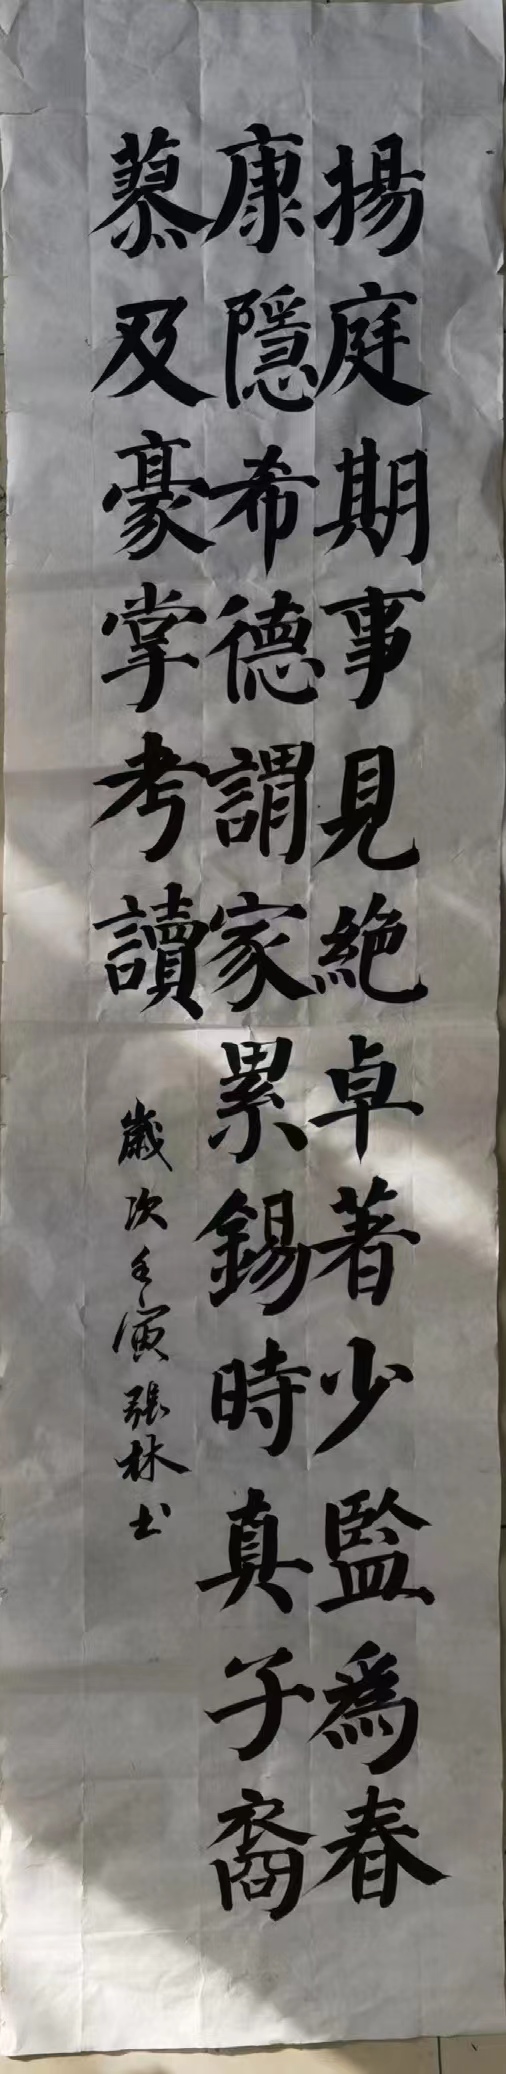 揚庭期事見絶卓著少監為春
康隱希德謂家累錫時真子裔
慕及豪掌考讀
歲次壬寅張林书